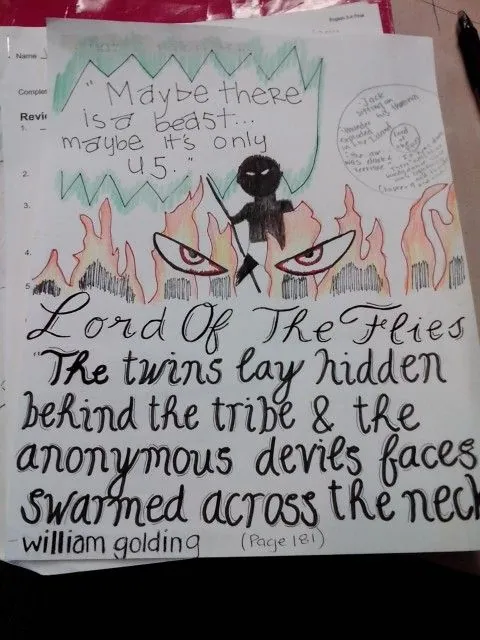 English 3-4 Final
Name
Comple
Revi
1.
2.
3.
4.
5
"Maybe there
is a beast...
maybe it's only
us."
Jack
sitting on
his
Lord Of The Flies
"The twins lay hidden
behind the tribe & the
anonymous devils faces
swarmed across the neck
william golding (Page 181)